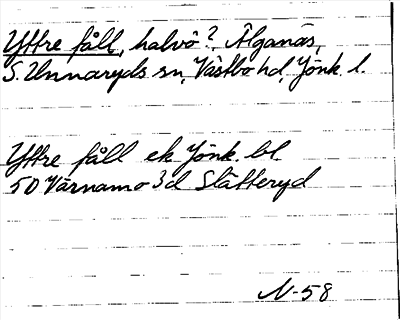 Yttre fåll, halvö?, Älganäs,
S. Unnaryds sn, Västbo hd, Jönk. l.
Yttre fåll ek Jönk. bl.
50 Värnamo 3d Slätteryd
N-58